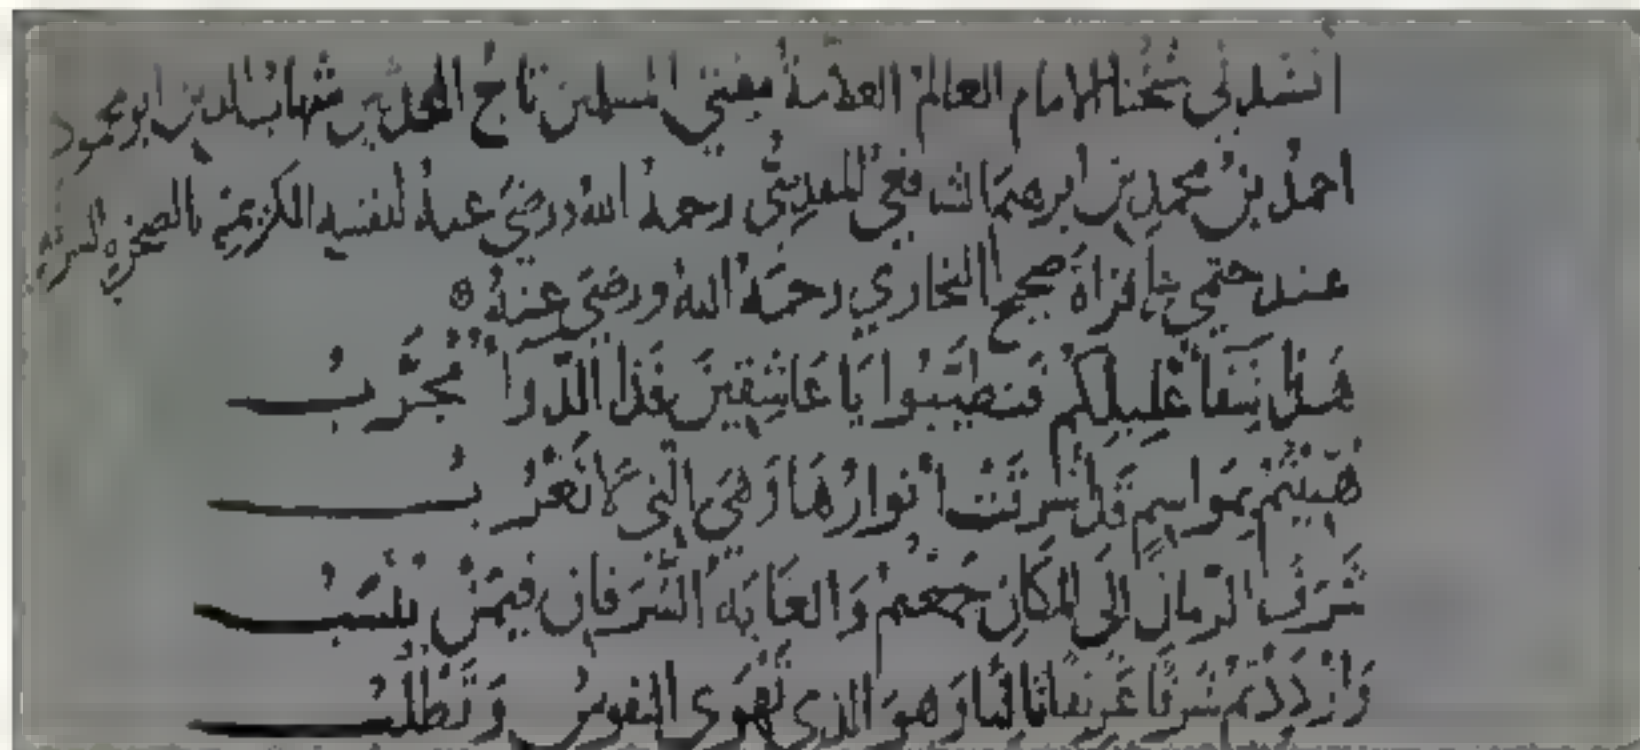 أنشدني شيخنا الإمام العالم العلامة مفتي المسلمين تاج المحدثين شهاب الدين ابو محمود
احمد بن محمد بن ابرهيم الشافعي المقدسي رحمه الله ورضي عنه لنفسه الكريمة بالصخرة الشريفة
عند ختمي قراة صحيح البخاري رحمه الله ورضي عنه
هذا شفا غليلكم فتطيبوا يا عاشقين فذا الدوا مجرب
هنيتم بمواسم قد أشرقت أنوارها وهي التي لا تغرب
شرف الزمان الى المكان جمعتم والغاية الشرفان فيمن ينسب
وازددتم شرفا ثالثا وهو الذي تهوى النفوس وتطلب